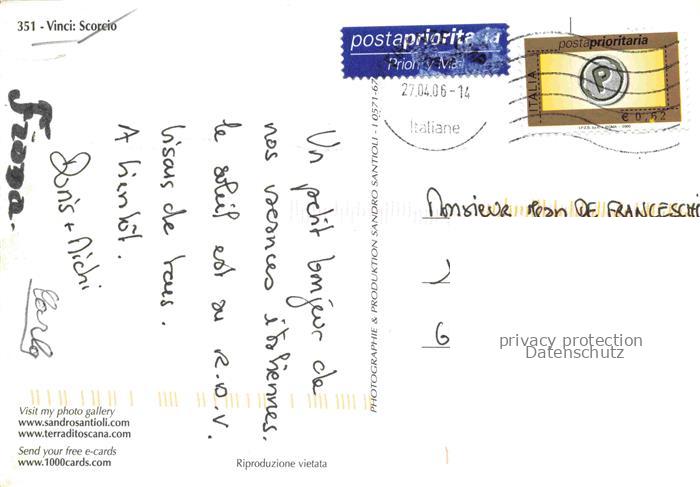 351 - Vinci: Scorcio
postaprioritaria
Priority Mail
27.04.06-14
Italiane
postaprioritaria
ITALIA
€ 0,62
Un petit bonjour de
nos vacances italiennes.
le soleil est au R.D.V.
bisous de tous.
A bientôt.
Doris + Michi
Carlo
PHOTOGRAPHIE & PRODUKTION SANDRO SANTIOLI - I 0571-67
Monsieur DE FRANCESCHI
1
6
privacy protection
Datenschutz
Visit my photo gallery
www.sandrosantioli.com
www.terraditoscana.com
Send your free e-cards
www.1000cards.com
Riproduzione vietata